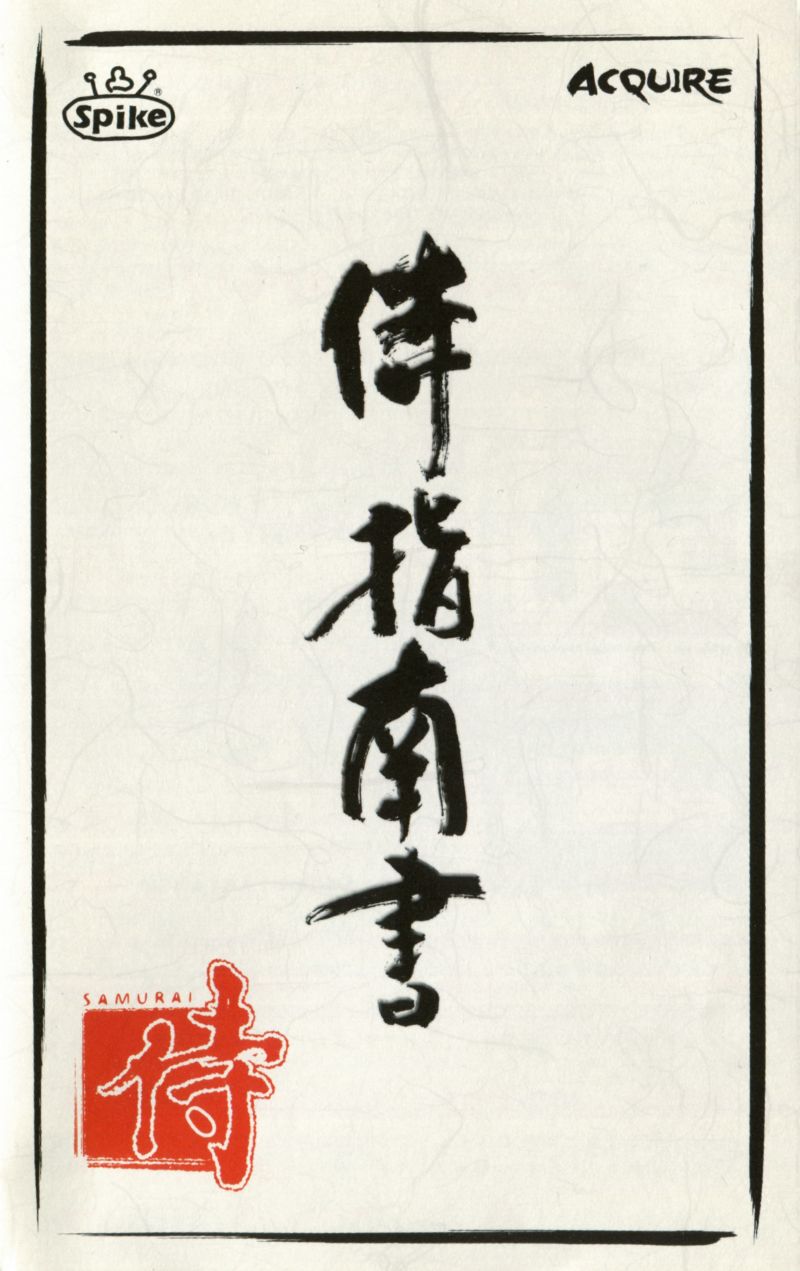 Spike®
ACQUIRE
侍指南書
SAMURAI
侍